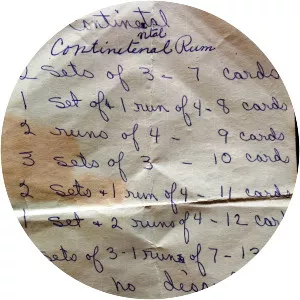 Continetal
ntal
Continetenal Rum
2 Sets of 3 - 7 cards
1 Set of 4 1 run of 4 - 8 cards
2 runs of 4 - 9 cards
3 Sets of 3 - 10 cards
2 Sets + 1 run of 4 - 11 cards
1 Set + 2 runs of 4 - 12 car
Sets of 3 - 1 run of 7 - 13
no